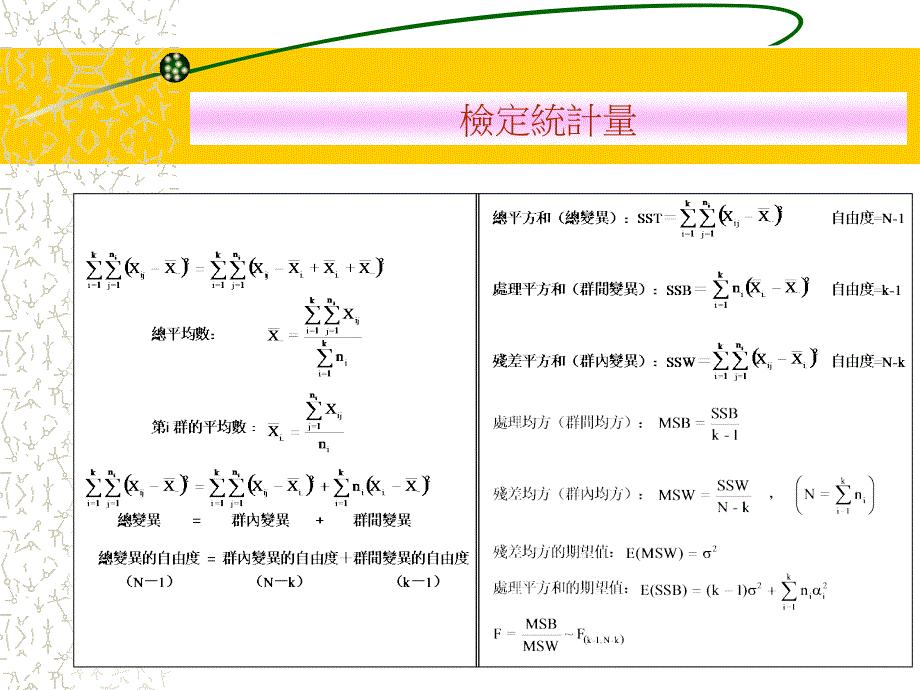 檢定統計量
∑_{i=1}^{k}∑_{j=1}^{n_i}(X_{ij} − X̄_{..})² = ∑_{i=1}^{k}∑_{j=1}^{n_i}(X_{ij} − X̄_{i.} + X̄_{i.} + X̄_{..})²
總平均數： X̄_{..} = ∑_{i=1}^{k}∑_{j=1}^{n_i}X_{ij} / ∑_{i=1}^{k}n_i
第i 群的平均數： X̄_{i.} = ∑_{j=1}^{n_i}X_{ij} / n_i
∑_{i=1}^{k}∑_{j=1}^{n_i}(X_{ij} − X̄_{..})² = ∑_{i=1}^{k}∑_{j=1}^{n_i}(X_{ij} − X̄_{i.})² + ∑_{i=1}^{k}n_i(X_{i.} − X̄_{..})²
總變異 = 群內變異 + 群間變異
總變異的自由度 = 群內變異的自由度＋群間變異的自由度
（N－1） （N－k） （k－1）
總平方和（總變異）：SST=∑_{i=1}^{k}∑_{j=1}^{n_i}(X_{ij} − X̄_{..})² 自由度=N-1
處理平方和（群間變異）：SSB=∑_{i=1}^{k}n_i(X̄_{i.} − X̄_{..})² 自由度=k-1
殘差平方和（群內變異）：SSW=∑_{i=1}^{k}∑_{j=1}^{n_i}(X_{ij} − X̄_{i.})² 自由度=N-k
處理均方（群間均方）： MSB = SSB / k - 1
殘差均方（群內均方）： MSW = SSW / N - k ， (N = ∑_{i=1}^{k}n_i)
殘差均方的期望值：E(MSW) = σ²
處理平方和的期望值：E(SSB) = (k − 1)σ² + ∑_{i=1}^{k}n_iα_i²
F = MSB / MSW ~ F_{(k-1, N-k)}